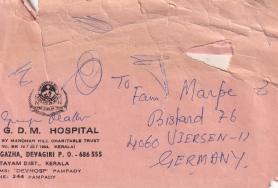 To
Fam. Marpe
Bisford 76
4060 VIERSEN-11
GERMANY.
G. D. M. HOSPITAL
BY MANOHAR HILL CHARITABLE TRUST
GAZHA, DEVAGIRI P. O. - 686 555
TAYAM DIST., KERALA
MS: "DEVHOSP" PAMPADY
NE: 244 PAMPADY